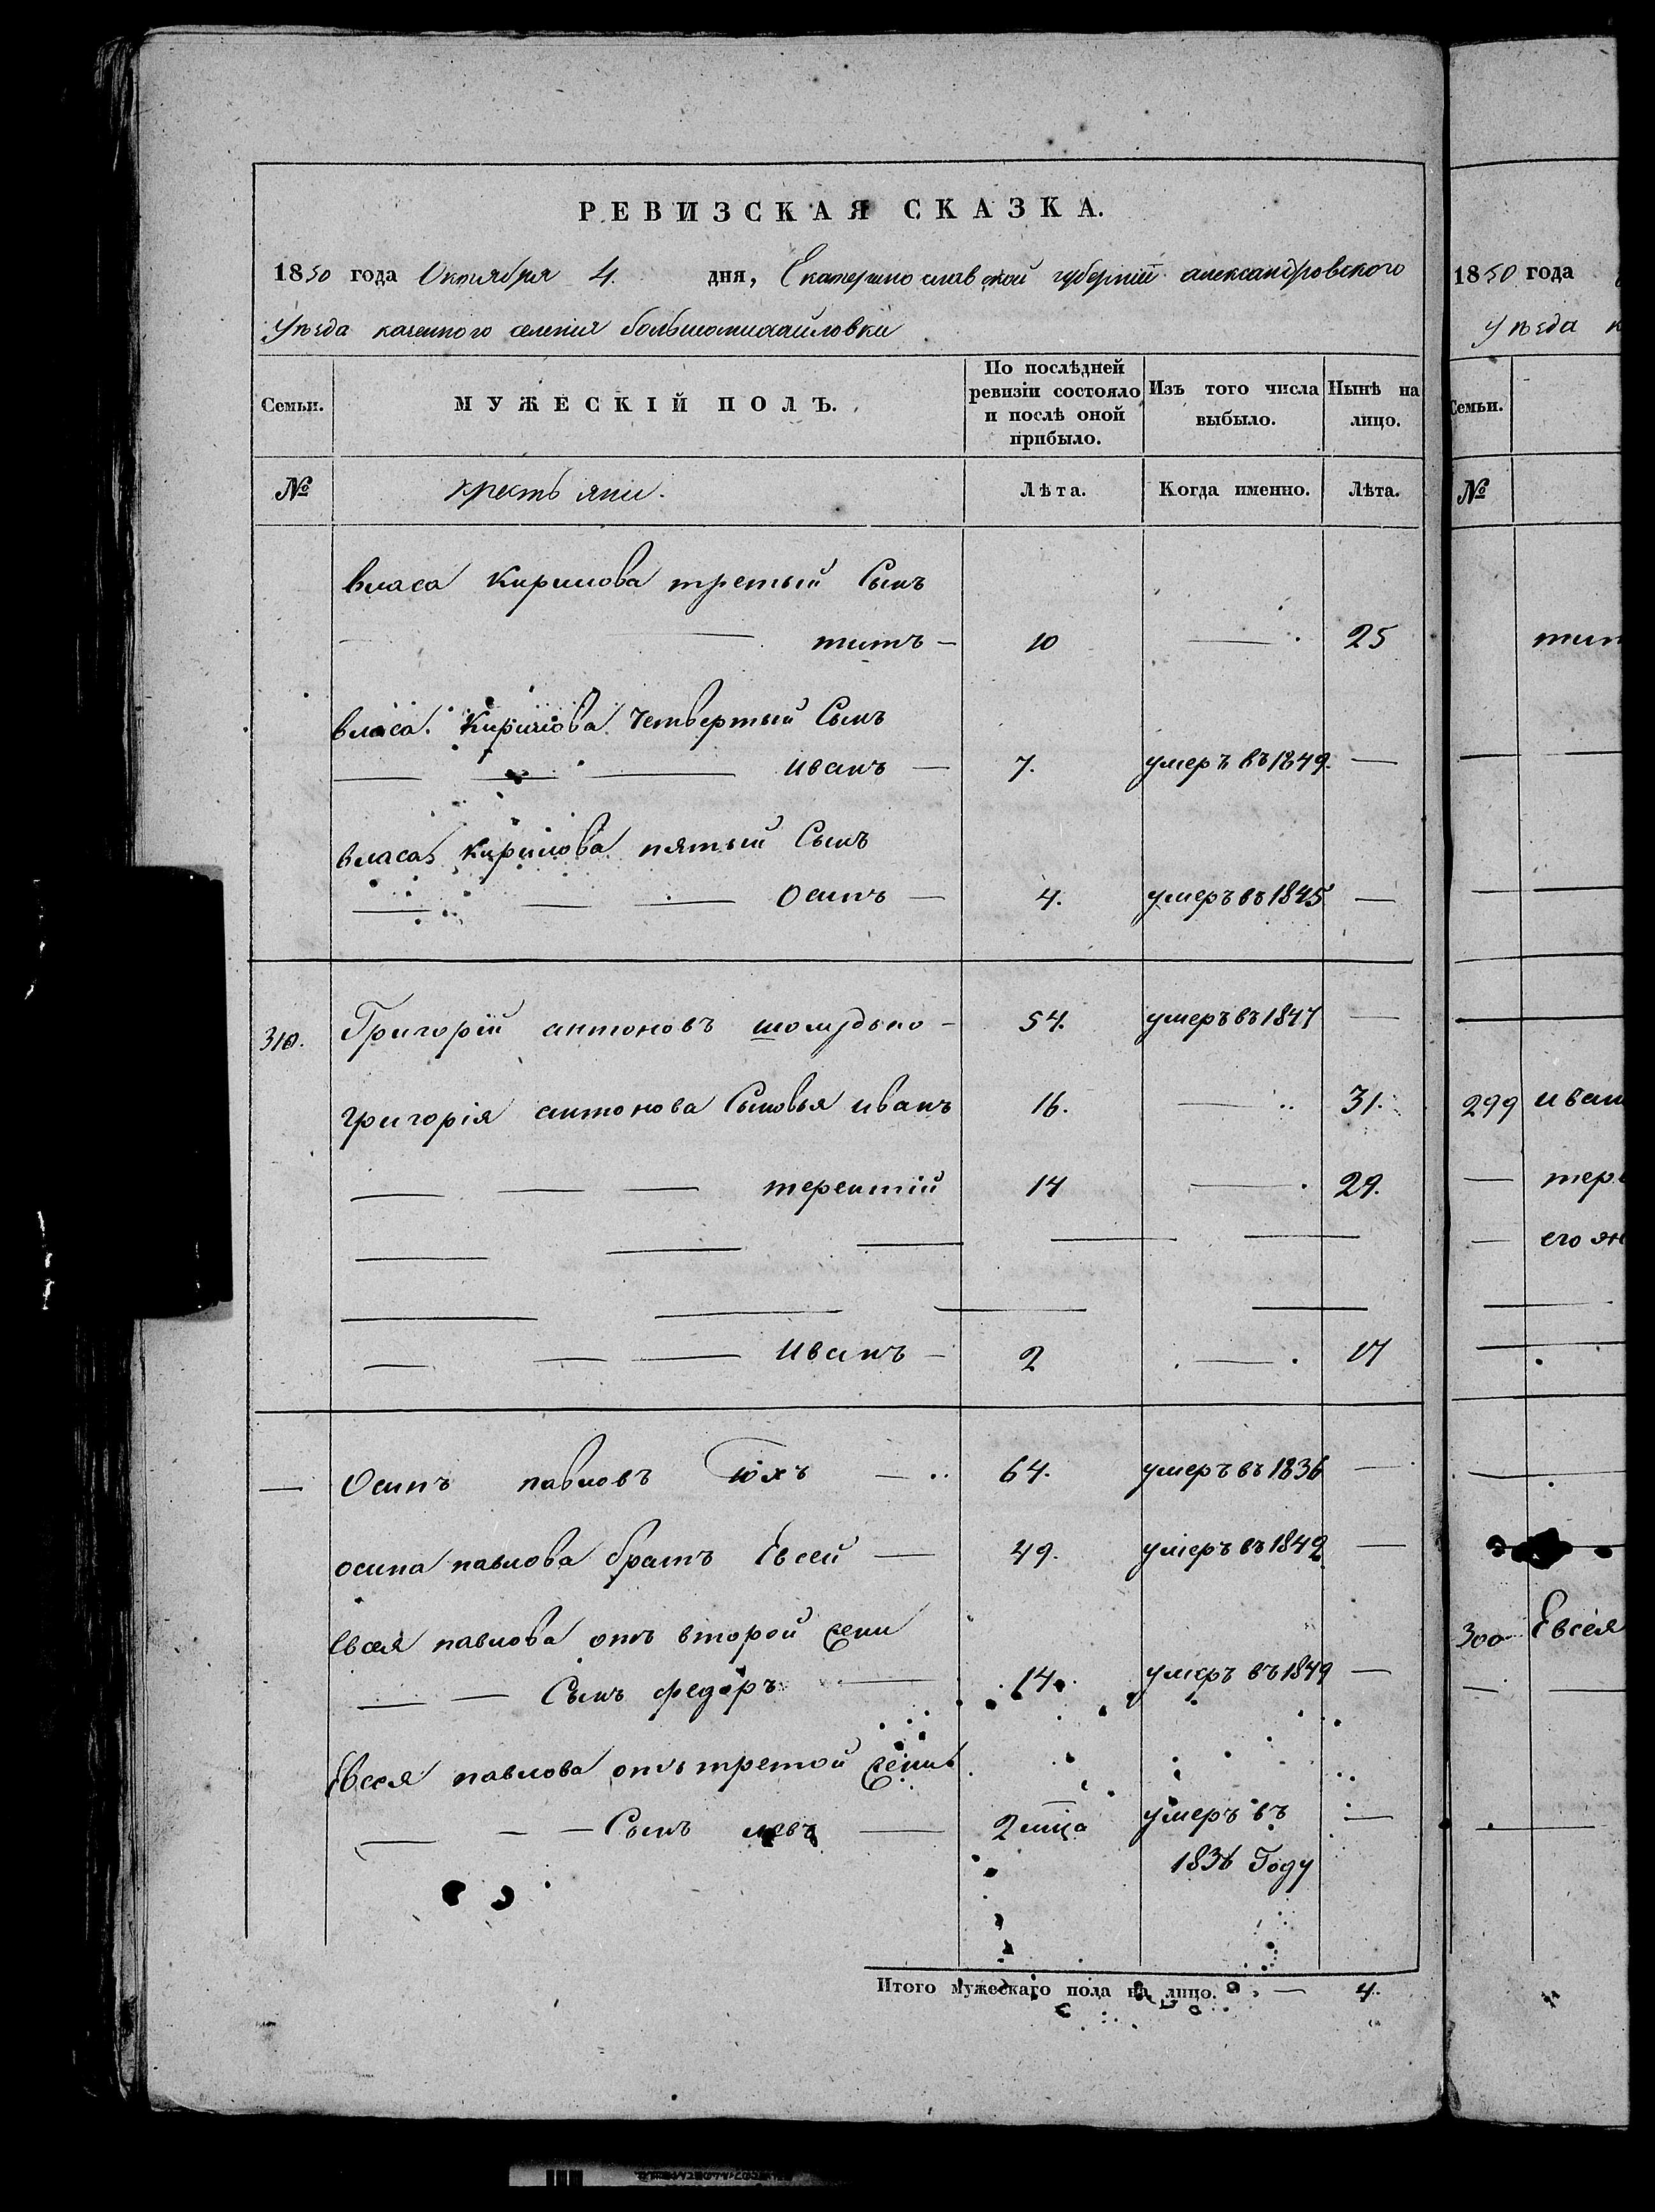 РЕВИЗСКАЯ СКАЗКА.
1850 года Октября 4. дня, Екатеринославской губернiи александровского
уѣзда казенного селенiя большомихайловки
Семьи. МУЖЕСКІЙ ПОЛЪ. По послѣдней ревизіи состояло и послѣ оной прибыло. Изъ того числа выбыло. Нынѣ на лицо.
№ крестьяни. Лѣта. Когда именно. Лѣта.
власа Кирилова третьий Сынъ
титъ — 10 — 25
власа Кирилова Четвертый Сынъ
иванъ — 7. умеръ въ 1849. —
власа Кирилова пятый Сынъ
Осипъ — 4. умеръ въ 1845 —
310. Григорій антоновъ — 54. умеръ въ 1847 —
григорія антонова Сыновья иванъ 16. — 31.
терентій 14 — 29.
Иванъ — 2 — 17
— Осипъ павловъ — 64. умеръ въ 1836 —
осипа павлова братъ Евсей — 49. умеръ въ 1849 —
Евсея павлова отъ второй
Сынъ федоръ — 14. умеръ въ 1849 —
Евсея павлова отъ третой
Сынъ левъ — 2 мца умеръ въ —
1836 Году
Итого мужескаго пола на лицо. — 4.
1850 года
уѣзда
Семьи.
№
299
его
300 Евсея